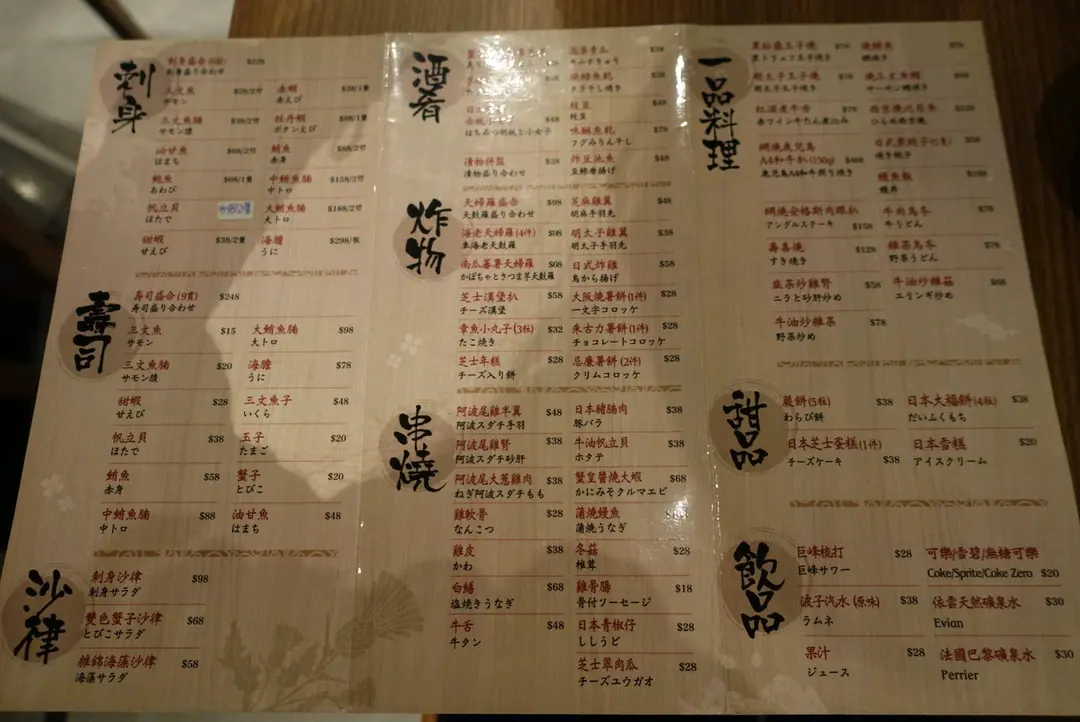 刺身
刺身盛合
刺身盛り合わせ
三文魚 $38/2切
サモン
赤蝦 $38/1隻
赤えび
三文魚腩 $38/2切
サモン腹
牡丹蝦 $88/1隻
ボタンえび
油甘魚 $68/2切
はまち
鮪魚 $88/2切
赤身
鮑魚 $68/1隻
あわび
中鮪魚腩 $158/2切
中トロ
帆立貝
ほたて
大鮪魚腩 $188/2切
大トロ
甜蝦 $38/2隻
せえび
海膽 $298/板
うに
壽司
壽司盛合 (9貫) $248
寿司盛り合わせ
三文魚 $15
サモン
大鮪魚腩 $98
大トロ
三文魚腩 $20
サモン腹
海膽 $78
うに
甜蝦 $28
せえび
三文魚子 $48
いくら
帆立貝 $38
ほたて
玉子 $20
たまご
鮪魚 $58
赤身
蟹子 $20
とびこ
中鮪魚腩 $88
中トロ
油甘魚 $48
はまち
沙律
刺身沙律 $98
刺身サラダ
雙色蟹子沙律 $68
とびこサラダ
雜錦海藻沙律 $58
海藻サラダ
酒肴
$38
キムきゅうり
燒鱈魚乾
タラ干し燒き
$48
はちみつ胡桃と小女子
枝豆 $48
枝豆
味醂魚乾 $78
フグみりん干し
漬物併盤 $38
漬物盛り合わせ
炸豆池魚 $48
豆鯵唐揚げ
炸物
天婦羅盛合 $98
天麩羅盛り合わせ
芝麻雞翼 $48
胡麻手羽先
海老天婦羅 (4件) $98
車海老天麩羅
明太子雞翼 $38
明太子手羽先
南瓜蕃薯天婦羅 $68
かぼちゃとさつま芋天麩羅
日式炸雞 $58
鳥から揚げ
芝士漢堡扒 $58
チーズ漢堡
大阪燒薯餅 (1件) $28
一文字コロッケ
章魚小丸子 (3粒) $32
たこ焼き
朱古力薯餅 (1件) $28
チョコレートコロッケ
芝士年糕 $28
チーズ入り餅
忌廉薯餅 (2件) $28
クリムコロッケ
串燒
阿波尾雞半翼 $48
阿波スダチ手羽
日本豬腩肉 $38
豚バラ
阿波尾雞腎 $38
阿波スダチ砂肝
牛油帆立貝 $38
ホタテ
阿波尾大葱雞肉 $38
ねぎ阿波スダチもも
蟹皇醬燒大蝦 $68
かにみそクルマエビ
雞軟骨 $28
なんこつ
蒲燒鰻魚
蒲焼うなぎ
雞皮 $38
かわ
冬菇 $28
椎茸
白鱔 $68
塩焼きうなぎ
雞骨腸 $18
骨付ソーセージ
牛舌 $48
牛タン
日本青椒仔 $28
ししうど
芝士翠肉瓜 $28
チーズユウガオ
一品料理
黑松露玉子燒 $78
黒トリュフ玉子焼き
燒鱆魚 $78
明太子玉子燒 $78
明太子玉子焼き
燒三文魚頭
紅酒煮牛舌 $78
赤ワイン牛たん煮込み
$128
ひらめ西京焼
網燒鹿兒島
A4和牛扒 (150g) $468
鹿児島A4和牛照り焼き
$38
焼き餃子
鰻魚飯
鰻丼
網燒安格斯肉眼扒
アングルステーキ $158
牛肉烏冬 $78
牛うどん
壽喜燒 $128
すき焼き
雜菜烏冬 $78
野菜うどん
韮菜炒雞腎 $58
ニラと砂肝炒め
牛油炒雜菇 $68
エリンギ炒め
牛油炒雜菜 $78
野菜炒め
甜品
蕨餅 (5粒) $38
わらび餅
日本大福餅 (4粒) $38
だいふくもち
日本芝士蛋糕 (1件)
チーズケーキ $38
日本雪糕 $20
アイスクリーム
飲品
巨峰梳打 $28
巨峰サワー
可樂/雪碧/無糖可樂
Coke/Sprite/Coke Zero $20
波子汽水 (原味) $38
ラムネ
依雲天然礦泉水 $30
Evian
果汁 $28
ジュース
法國巴黎礦泉水 $30
Perrier